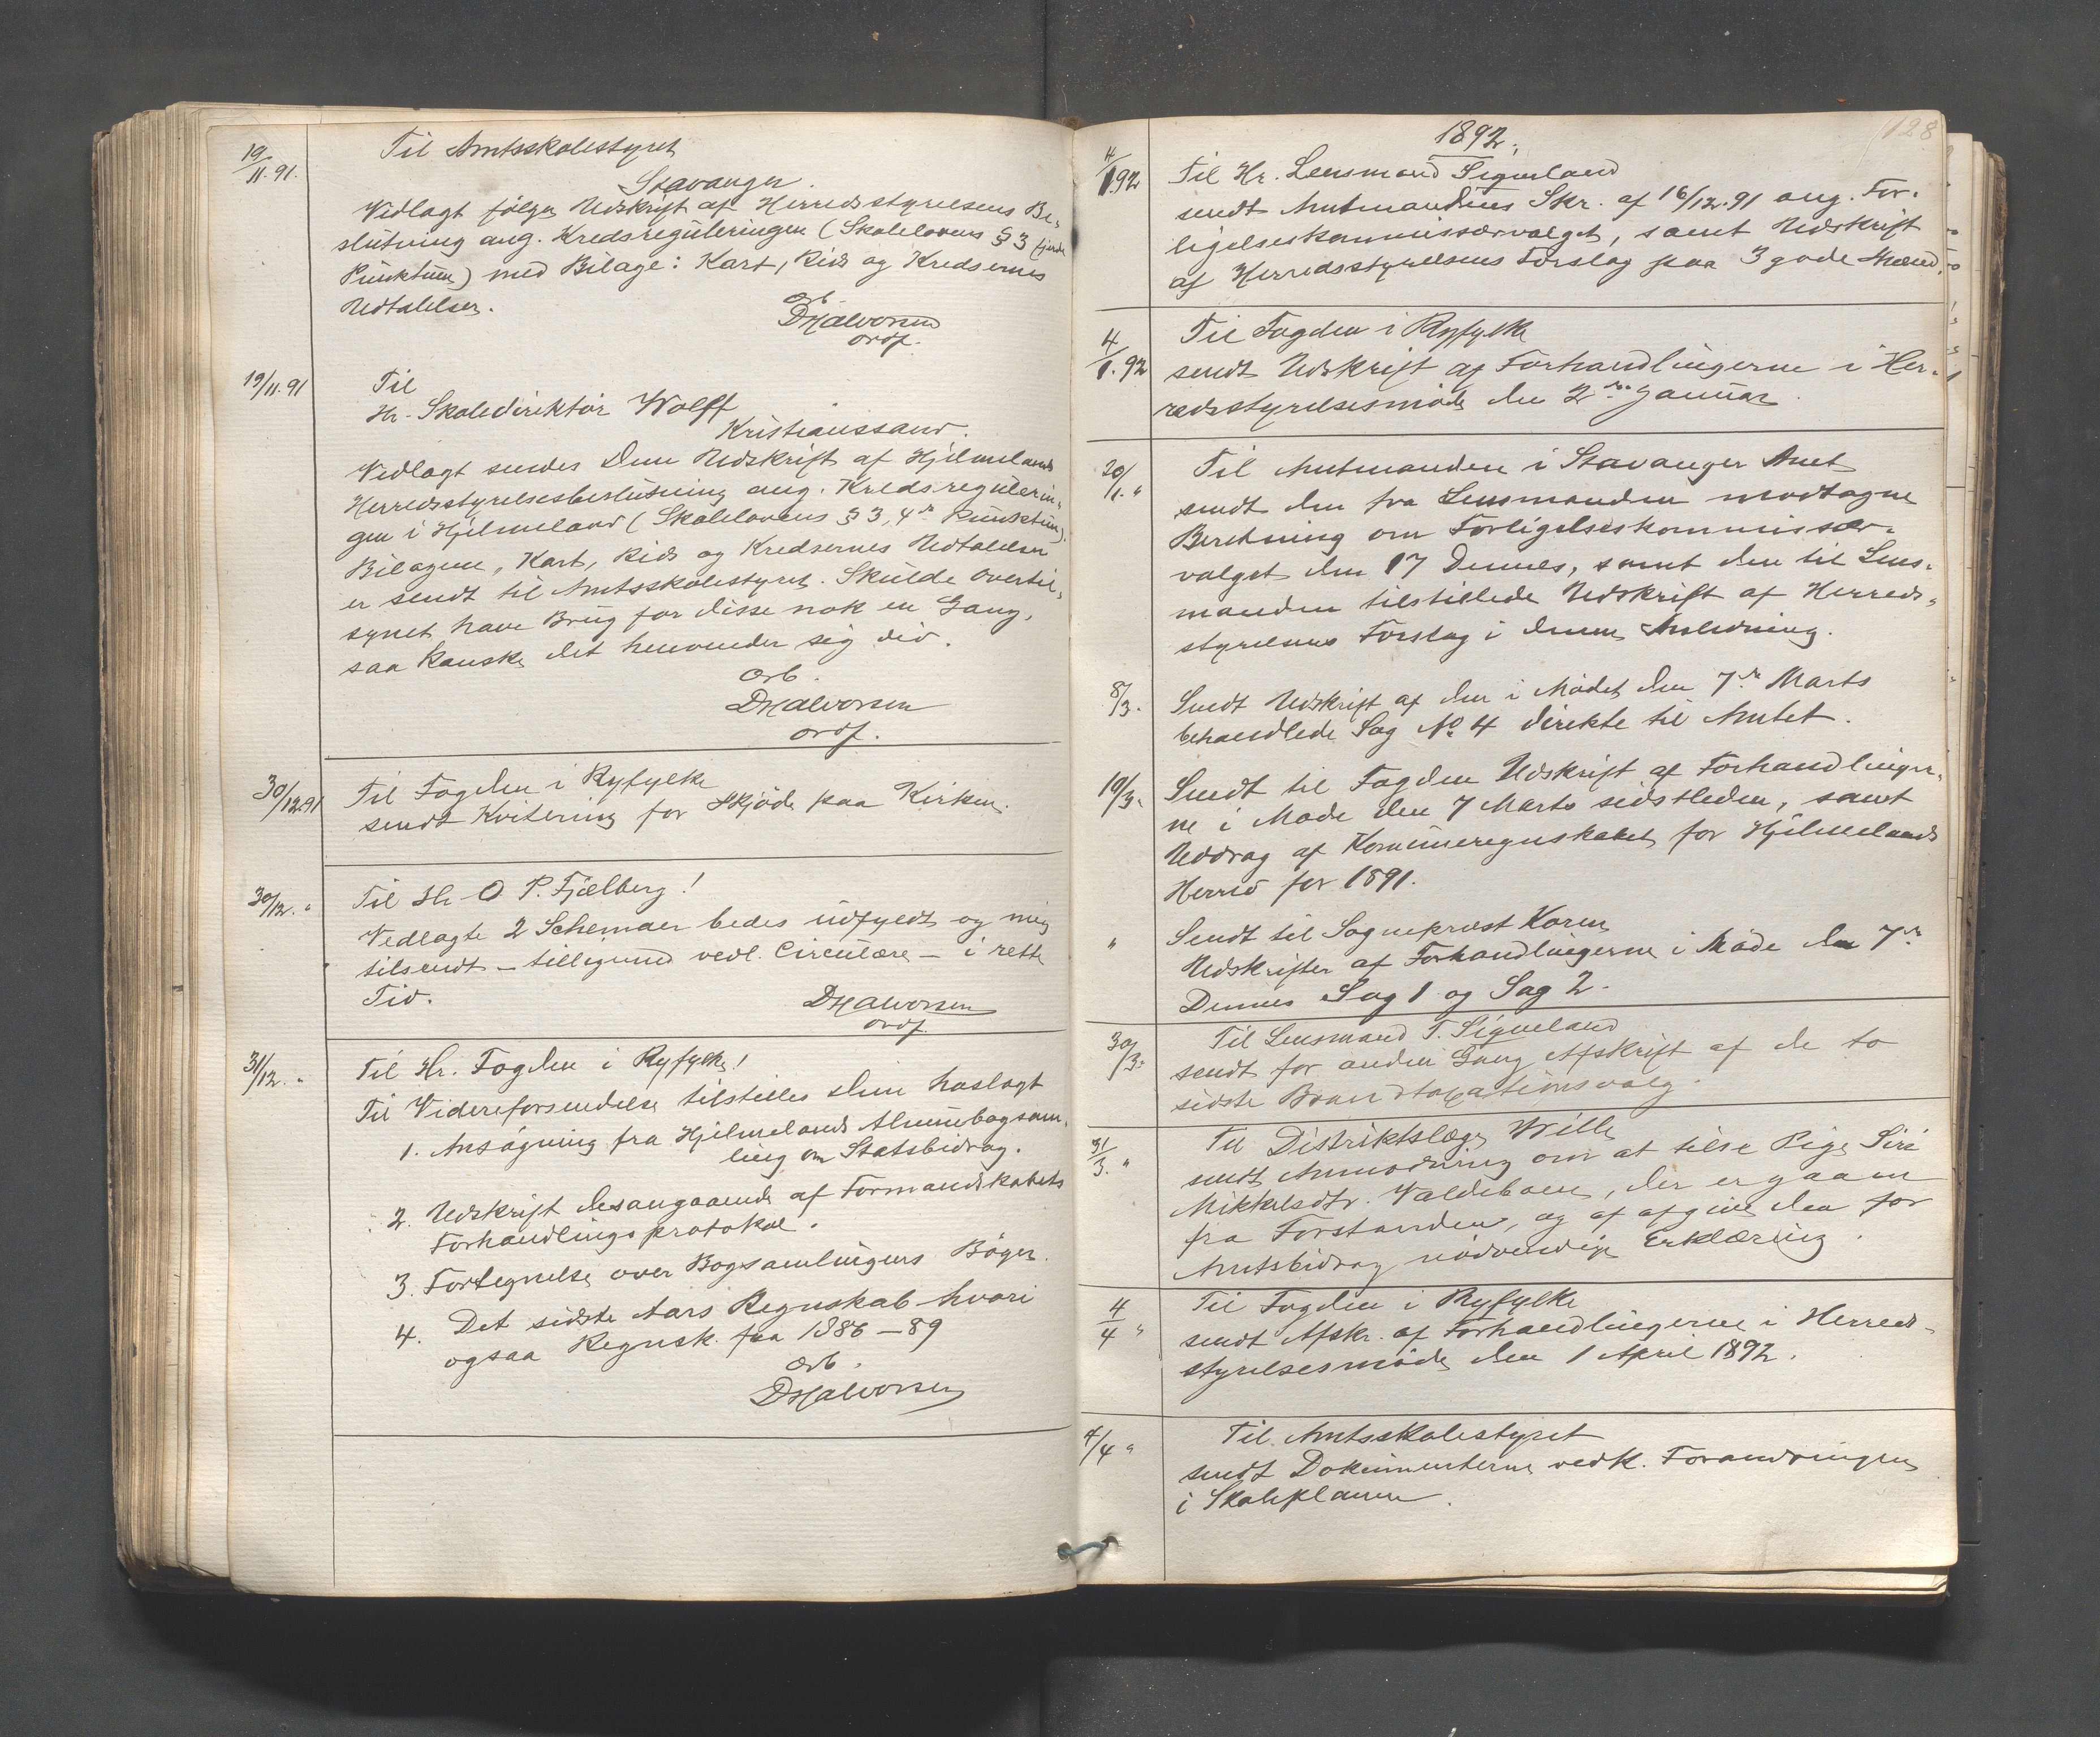 19/11.91.
Til Amtsskolestyret
Stavanger.
Vedlagt følger Udskrift af Herredsstyrelsens Be-
slutning ang. Kredsreguleringen (Skolelovens § 3 fjerde
Punktum) med Bilage: Kart, Rids og Kredsernes
Udtalelser.
Ærb.
DHalvorsen
ordf.
19/11.91
Til
Hr. Skoledirektør Wolff
Kristianssand.
Vedlagt sendes Dem Udskrift af Hjelmelands
Herredsstyrelsesbeslutning ang. Kredsregulerin-
gen i Hjelmeland (Skolelovens § 3, 4de Punktum).
Bilagene, Kart, Rids og Kredsernes Udtalelser
er sendt til Amtsskolestyret. Skulde Overtil-
synet have Brug for disse nok en Gang,
saa kanske det henvender sig did.
Ærb.
DHalvorsen
ordf.
30/12.91
Til Fogden i Ryfylke
sendt Kvitering for Skjøde paa Kirken.
30/12. "
Til Hr O. P. Fjelberg!
Vedlagte 2 Schemaer bedes udfyldt og mig
tilsendt – tilligemed vedl. Circulære – i rette
Tid.
DHalvorsen
ordf.
31/12. "
Til Hr. Fogden i Ryfylke!
Til Videreforsendelse tilstilles Dem hoslagt
1. Ansøgning fra Hjelmelands Almuebogsam-
ling om Statsbidrag.
2. Udskrift desangaaende af Formandskabets
Forhandlingsprotokol.
3. Fortegnelse over Bogsamlingens Bøger.
4. Det sidste Aars Regnskab hvori
ogsaa Regnsk. fra 1886–89
Ærb.
DHalvorsen
128
1892.
4/1.92
Til Hr. Lensmand Signeland
sendt Amtmandens Skr. af 16/12.91 ang. For-
ligelseskommissærvalget, samt Udskrift
af Herredsstyrelsens Forslag paa 3 gode Mænd.
4/1.92
Til Fogden i Ryfylke
sendt Udskrift af Forhandlingerne i Her-
redsstyrelsesmøde den 2den Januar.
20/1. "
Til Amtmanden i Stavanger Amt
sendt den fra Lensmanden modtagne
Beretning om Forligelseskommissær-
valget den 17 Dennes, samt den til Lens-
manden tilstillede Udskrift af Herreds-
styrelsens Forslag i denne Anledning.
8/3.
Sendt Udskrift af den i Mødet den 7de Marts
behandlede Sag No 4 direkte til Amtet.
19/3.
Sendt til Fogden Udskrift af Forhandlinger-
ne i Møde den 7 Marts sidstleden, samt
Uddrag af Komuneregnskabet for Hjelmelands
Herred for 1891.
"
Sendt til Sogneprest Koren
Udskrifter af Forhandlingerne i Møde den 7de
Dennes Sag 1 og Sag 2.
30/3.
Til Lensmand T. Signeland
sendt for anden Gang Afskrift af de to
sidste Brandtaxationsvalg.
31/3. "
Til Distriktslæge Wille
sendt Anmodning om at tilse Pige Siri
Mikkelsdtr. Valdeboen, der er gaaen
fra Forstanden, og at afgive den for
Amtsbidrag nødvendige Erklæring.
4/4 "
Til Fogden i Ryfylke
sendt Afskr. af Forhandlingerne i Herreds-
styrelsesmøde den 1 April 1892.
4/4 "
Til Amtsskolestyret
sendt Dokumenterne vedk. Forandringen
i Skoleplanen.